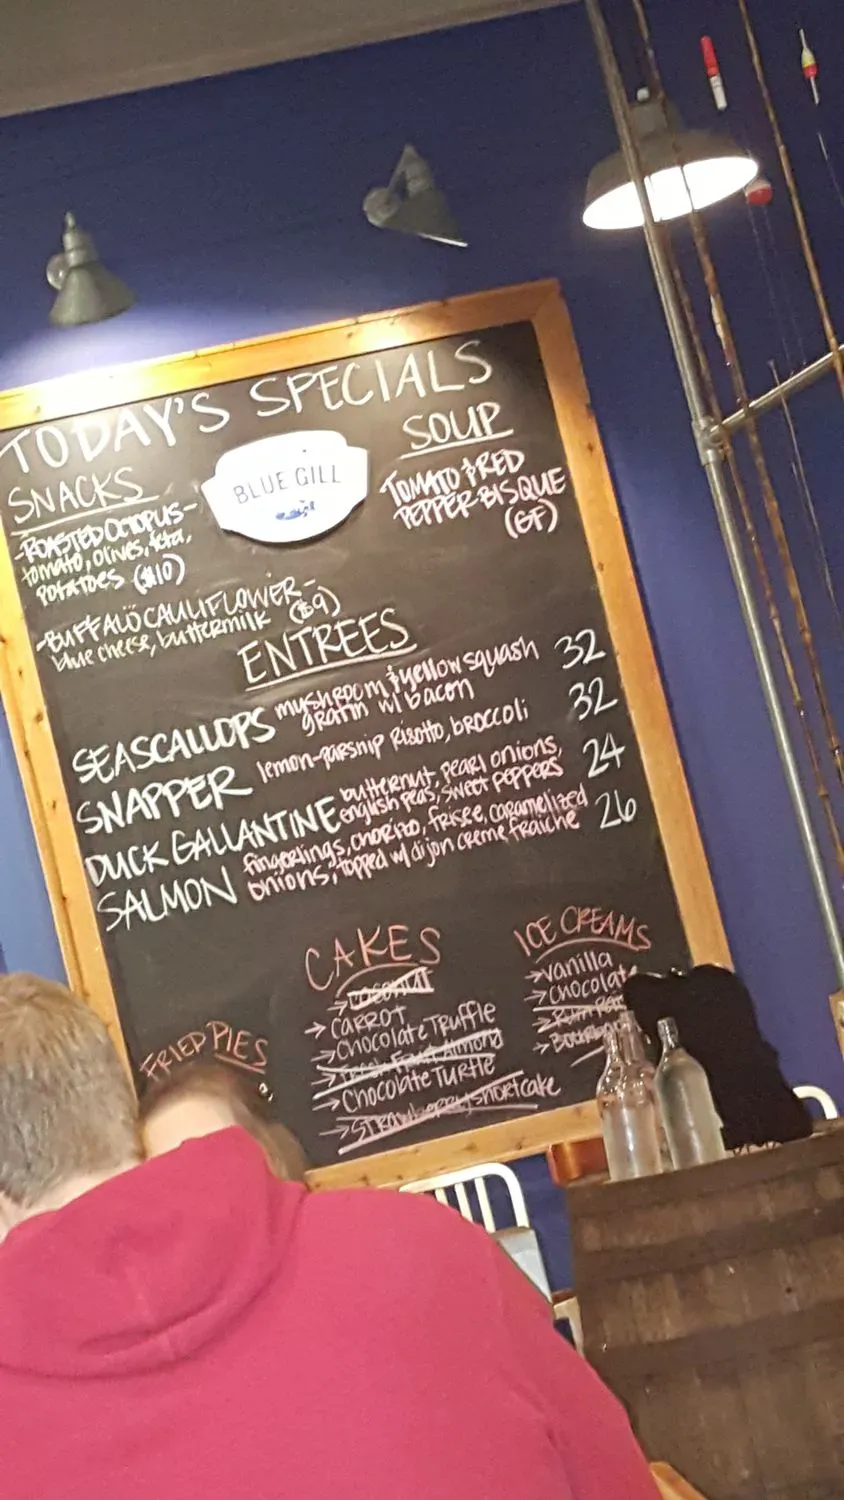 TODAY'S SPECIALS
SNACKS
-ROASTED OCTOPUS-
tomato, olives, feta,
potatoes ($10)
-BUFFALO CAULIFLOWER-
blue cheese, buttermilk ($9)
BLUE GILL
SOUP
TOMATO & RED
PEPPER BISQUE
(GF)
ENTREES
SEASCALLOPS mushroom & yellow squash 32
gratin w/ bacon
SNAPPER lemon-parsnip risotto, broccoli 32
DUCK GALLANTINE butternut, pearl onions, 24
english peas, sweet peppers
SALMON fingerlings, chorizo, frisee, caramelized 26
onions, topped w/ dijon creme fraiche
FRIED PIES
CAKES
→ COCONUT
→ CARROT
→ Chocolate Truffle
→ Fresh Fruit Almond
→ Chocolate Turtle
→ Strawberry shortcake
ICE CREAMS
→ vanilla
→ Chocolate
→
→ Bourbon